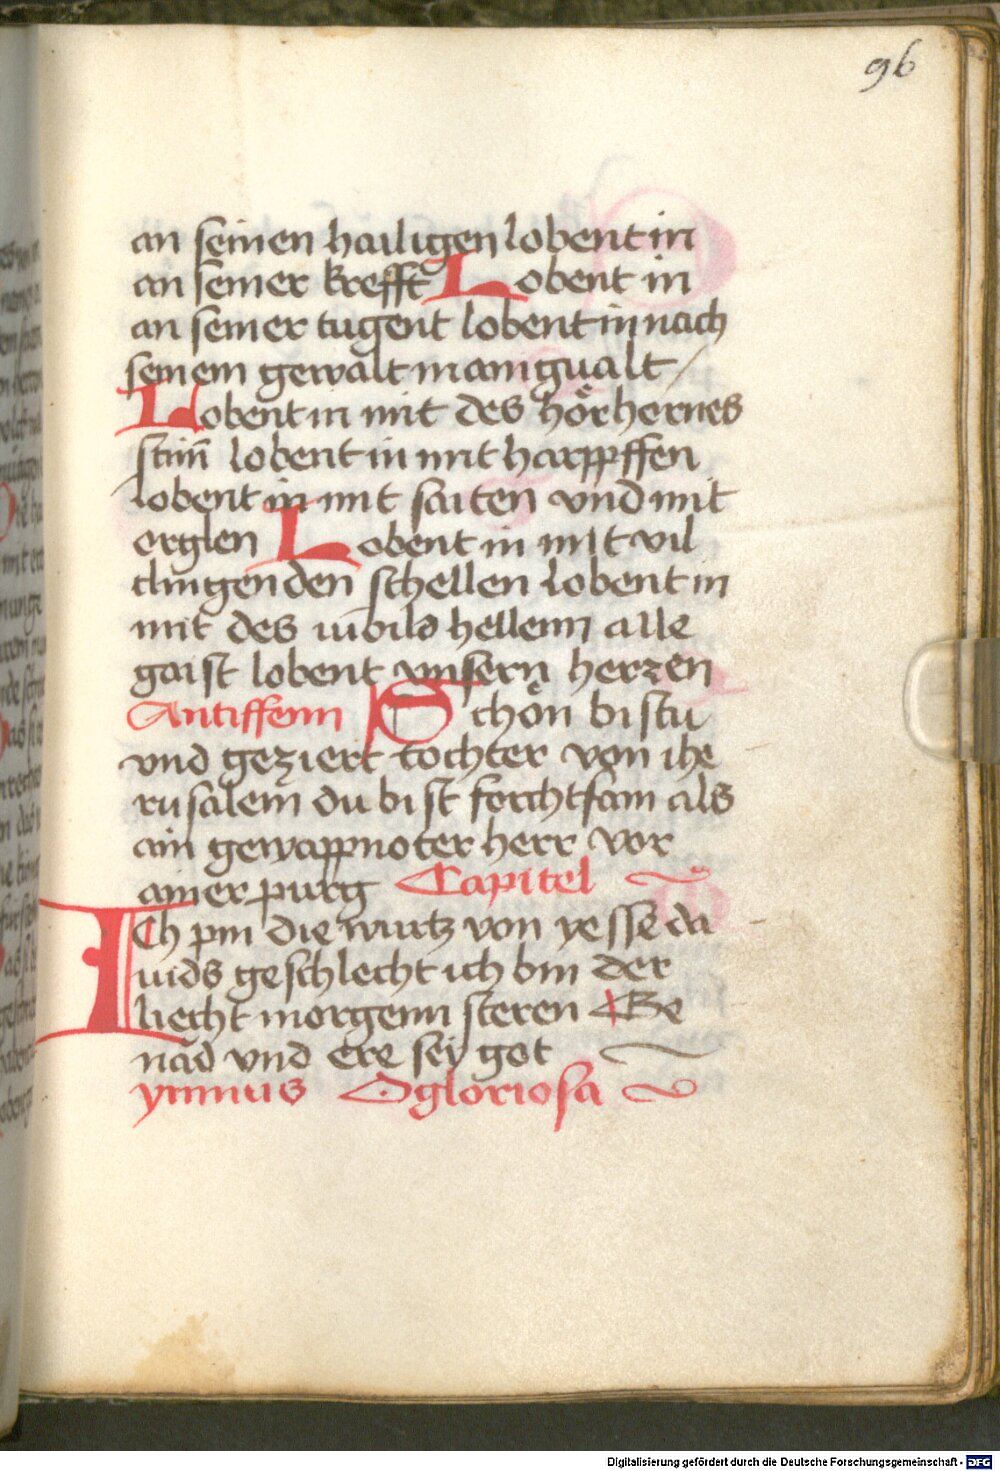 96
an seinen hailigen lobent in
an seiner krefft Lobent in
an seiner tugent lobent in nach
seinem gewalt manigualt /
Lobent in mit des hörhernes
stim̄ lobent in mit harppffen
lobent in mit saiten vnd mit
erglen Lobent in mit vil
clingenden schellen lobent in
mit des iubilo hellenn alle
gaist lobent vnsern herzen
Antiffenn Schön bistu
vnd geziert tochter von ihe
rusalem du bist forchtsam als
ain gewappnoter herr vor
ainer purg Capitel
Ich pin die wurtz von yesse da
uids geschlecht ich bin der
liecht morgenn steren Ge
nad vnd ere sey got
ymnus O gloriosa
Digitalisierung gefördert durch die Deutsche Forschungsgemeinschaft - DFG